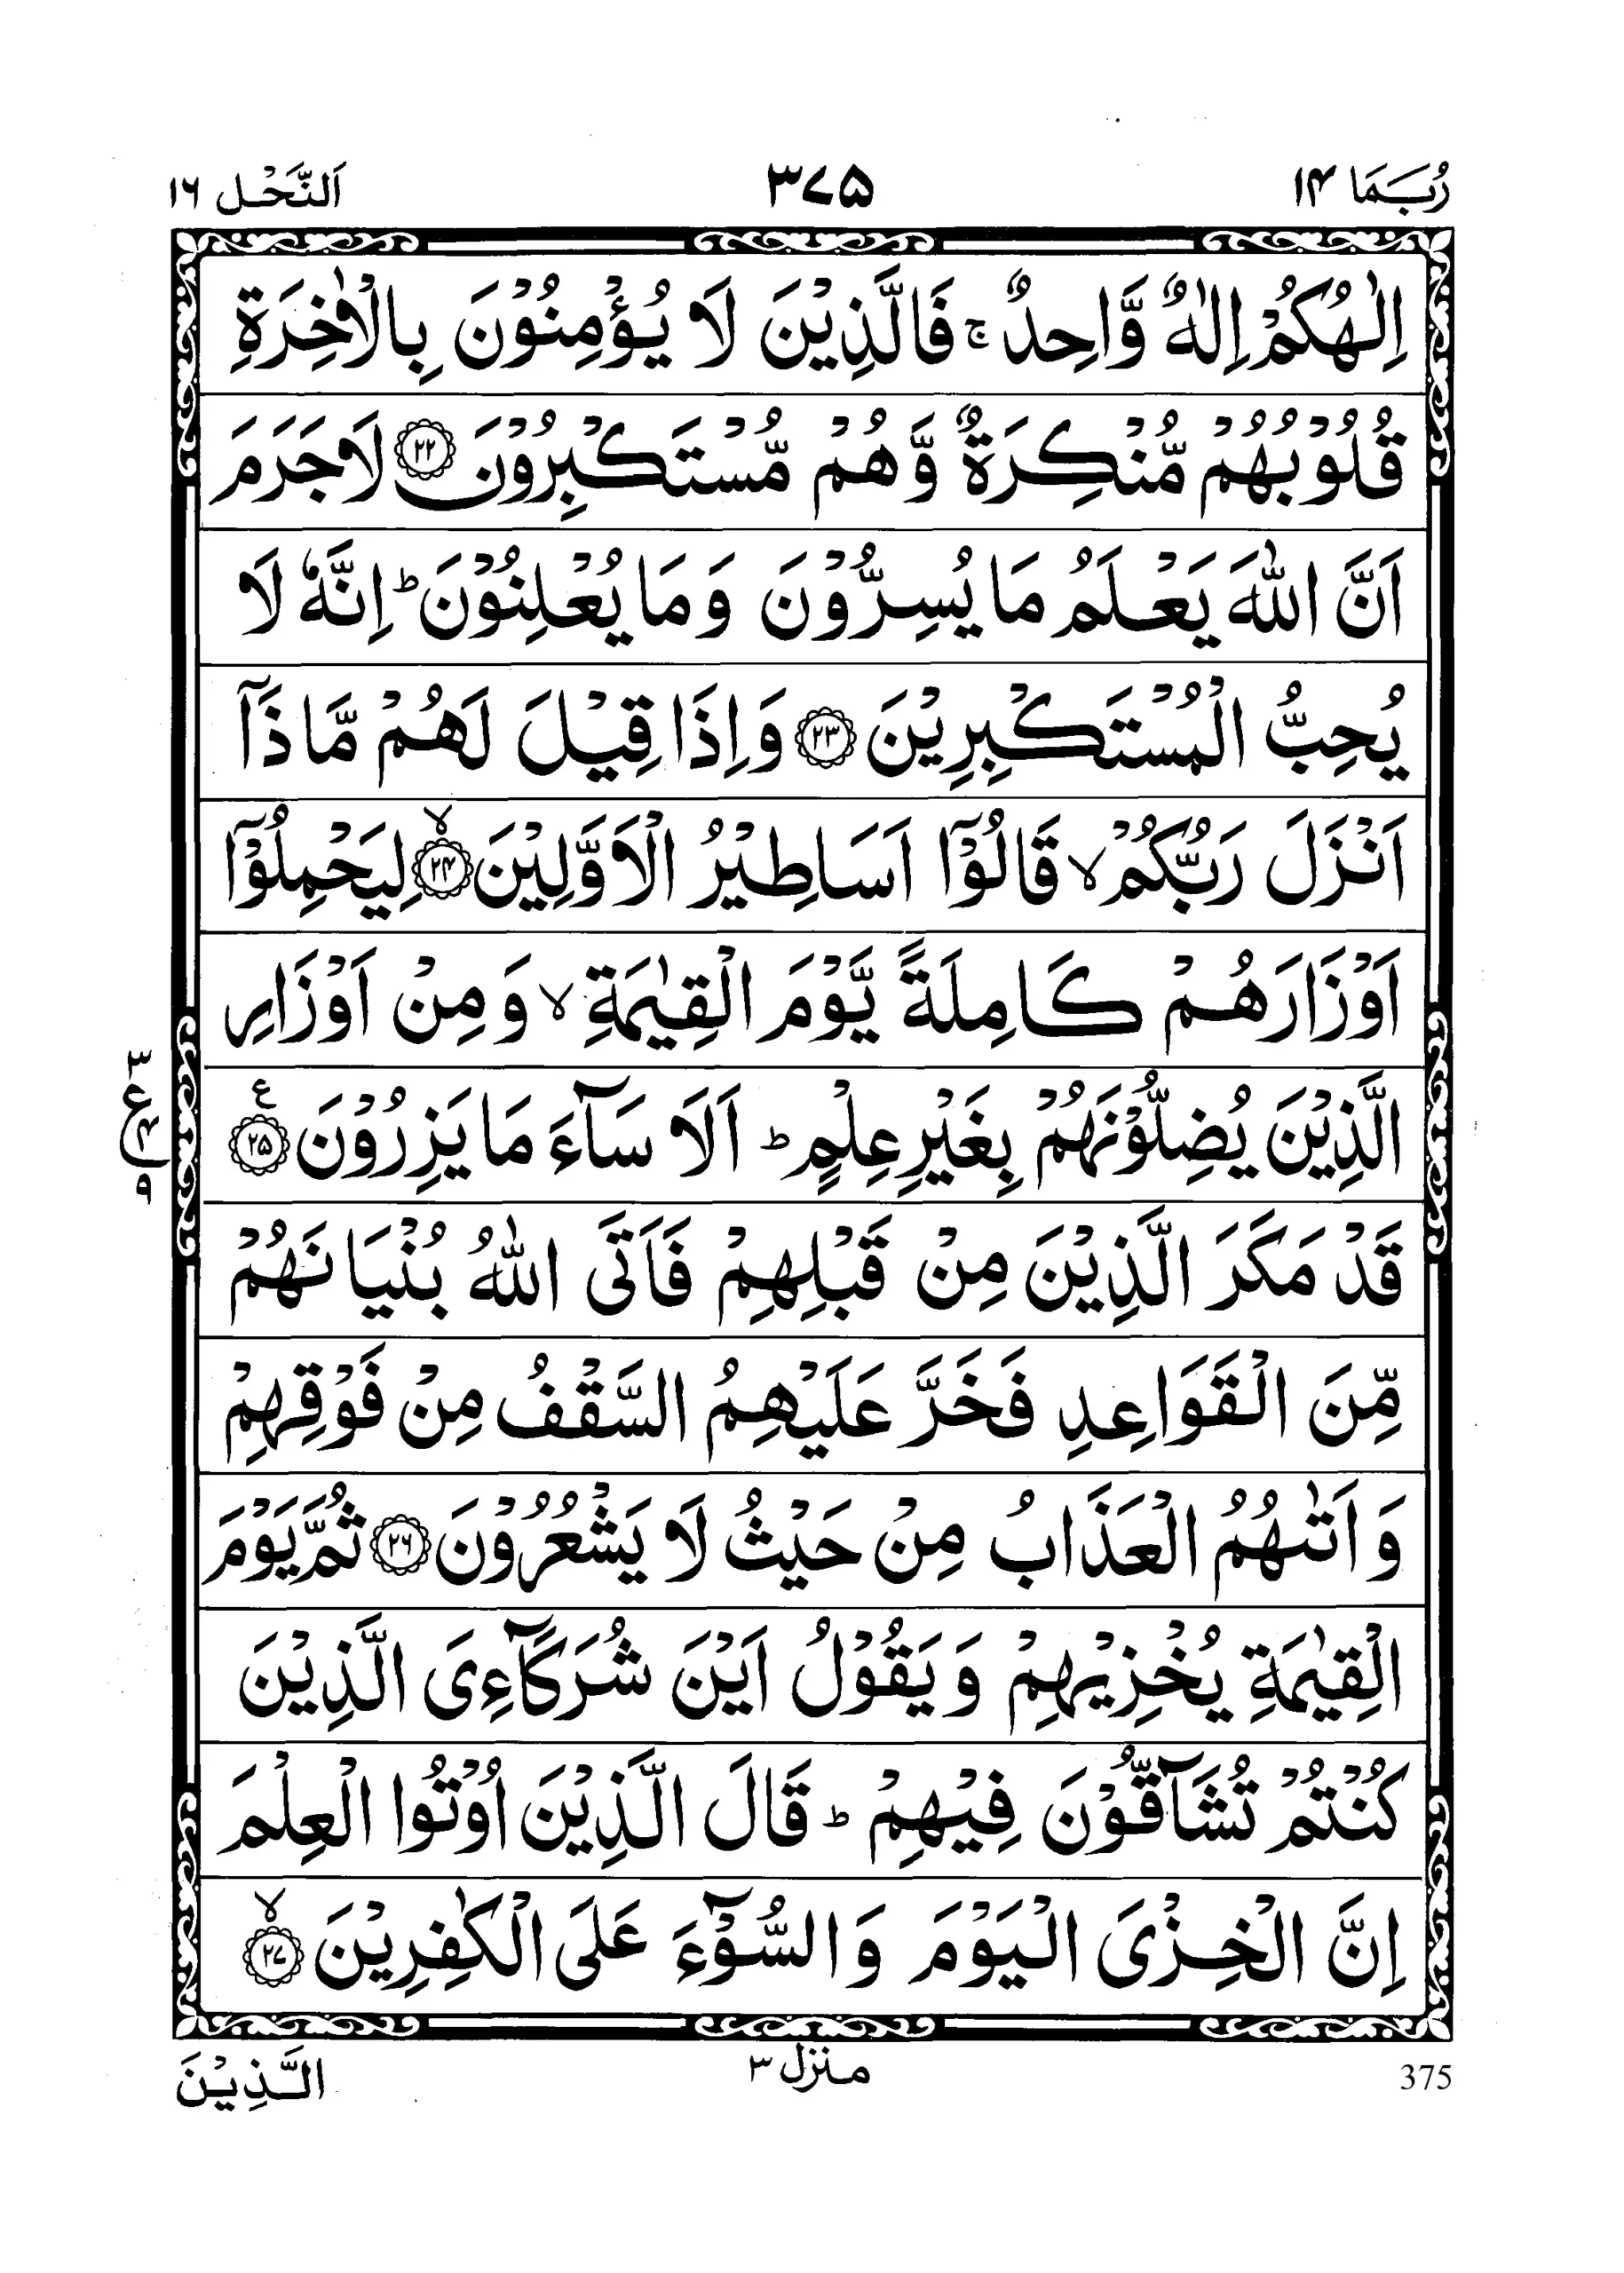 رُبَمَا ١٤
٣٧٥
اَلنَّحْل ١٦
اِلٰهُكُمْ اِلٰهٌ وَّاحِدٌ ۚ فَالَّذِيْنَ لَا يُؤْمِنُوْنَ بِالْاٰخِرَةِ
قُلُوْبُهُمْ مُّنْكِرَةٌ وَّهُمْ مُّسْتَكْبِرُوْنَ ﴿٢٢﴾ لَاجَرَمَ
اَنَّ اللّٰهَ يَعْلَمُ مَا يُسِرُّوْنَ وَمَا يُعْلِنُوْنَ ؕ اِنَّهٗ لَا
يُحِبُّ الْمُسْتَكْبِرِيْنَ ﴿٢٣﴾ وَاِذَا قِيْلَ لَهُمْ مَّاذَاۤ
اَنْزَلَ رَبُّكُمْ ۙ قَالُوْۤا اَسَاطِيْرُ الْاَوَّلِيْنَ ۙ﴿٢٤﴾ لِيَحْمِلُوْۤا
اَوْزَارَهُمْ كَامِلَةً يَّوْمَ الْقِيٰمَةِ ۙ وَمِنْ اَوْزَارِ
الَّذِيْنَ يُضِلُّوْنَهُمْ بِغَيْرِ عِلْمٍ ؕ اَلَا سَآءَ مَا يَزِرُوْنَ ﴿٢٥﴾ ع
٣
ع
٩
قَدْ مَكَرَ الَّذِيْنَ مِنْ قَبْلِهِمْ فَاَتَى اللّٰهُ بُنْيَانَهُمْ
مِّنَ الْقَوَاعِدِ فَخَرَّ عَلَيْهِمُ السَّقْفُ مِنْ فَوْقِهِمْ
وَاَتٰىهُمُ الْعَذَابُ مِنْ حَيْثُ لَا يَشْعُرُوْنَ ﴿٢٦﴾ ثُمَّ يَوْمَ
الْقِيٰمَةِ يُخْزِيْهِمْ وَيَقُوْلُ اَيْنَ شُرَكَآءِىَ الَّذِيْنَ
كُنْتُمْ تُشَآقُّوْنَ فِيْهِمْ ؕ قَالَ الَّذِيْنَ اُوْتُوا الْعِلْمَ
اِنَّ الْخِزْىَ الْيَوْمَ وَالسُّوْٓءَ عَلَى الْكٰفِرِيْنَ ۙ﴿٢٧﴾
375
منزل ٣
الَّذِيْنَ